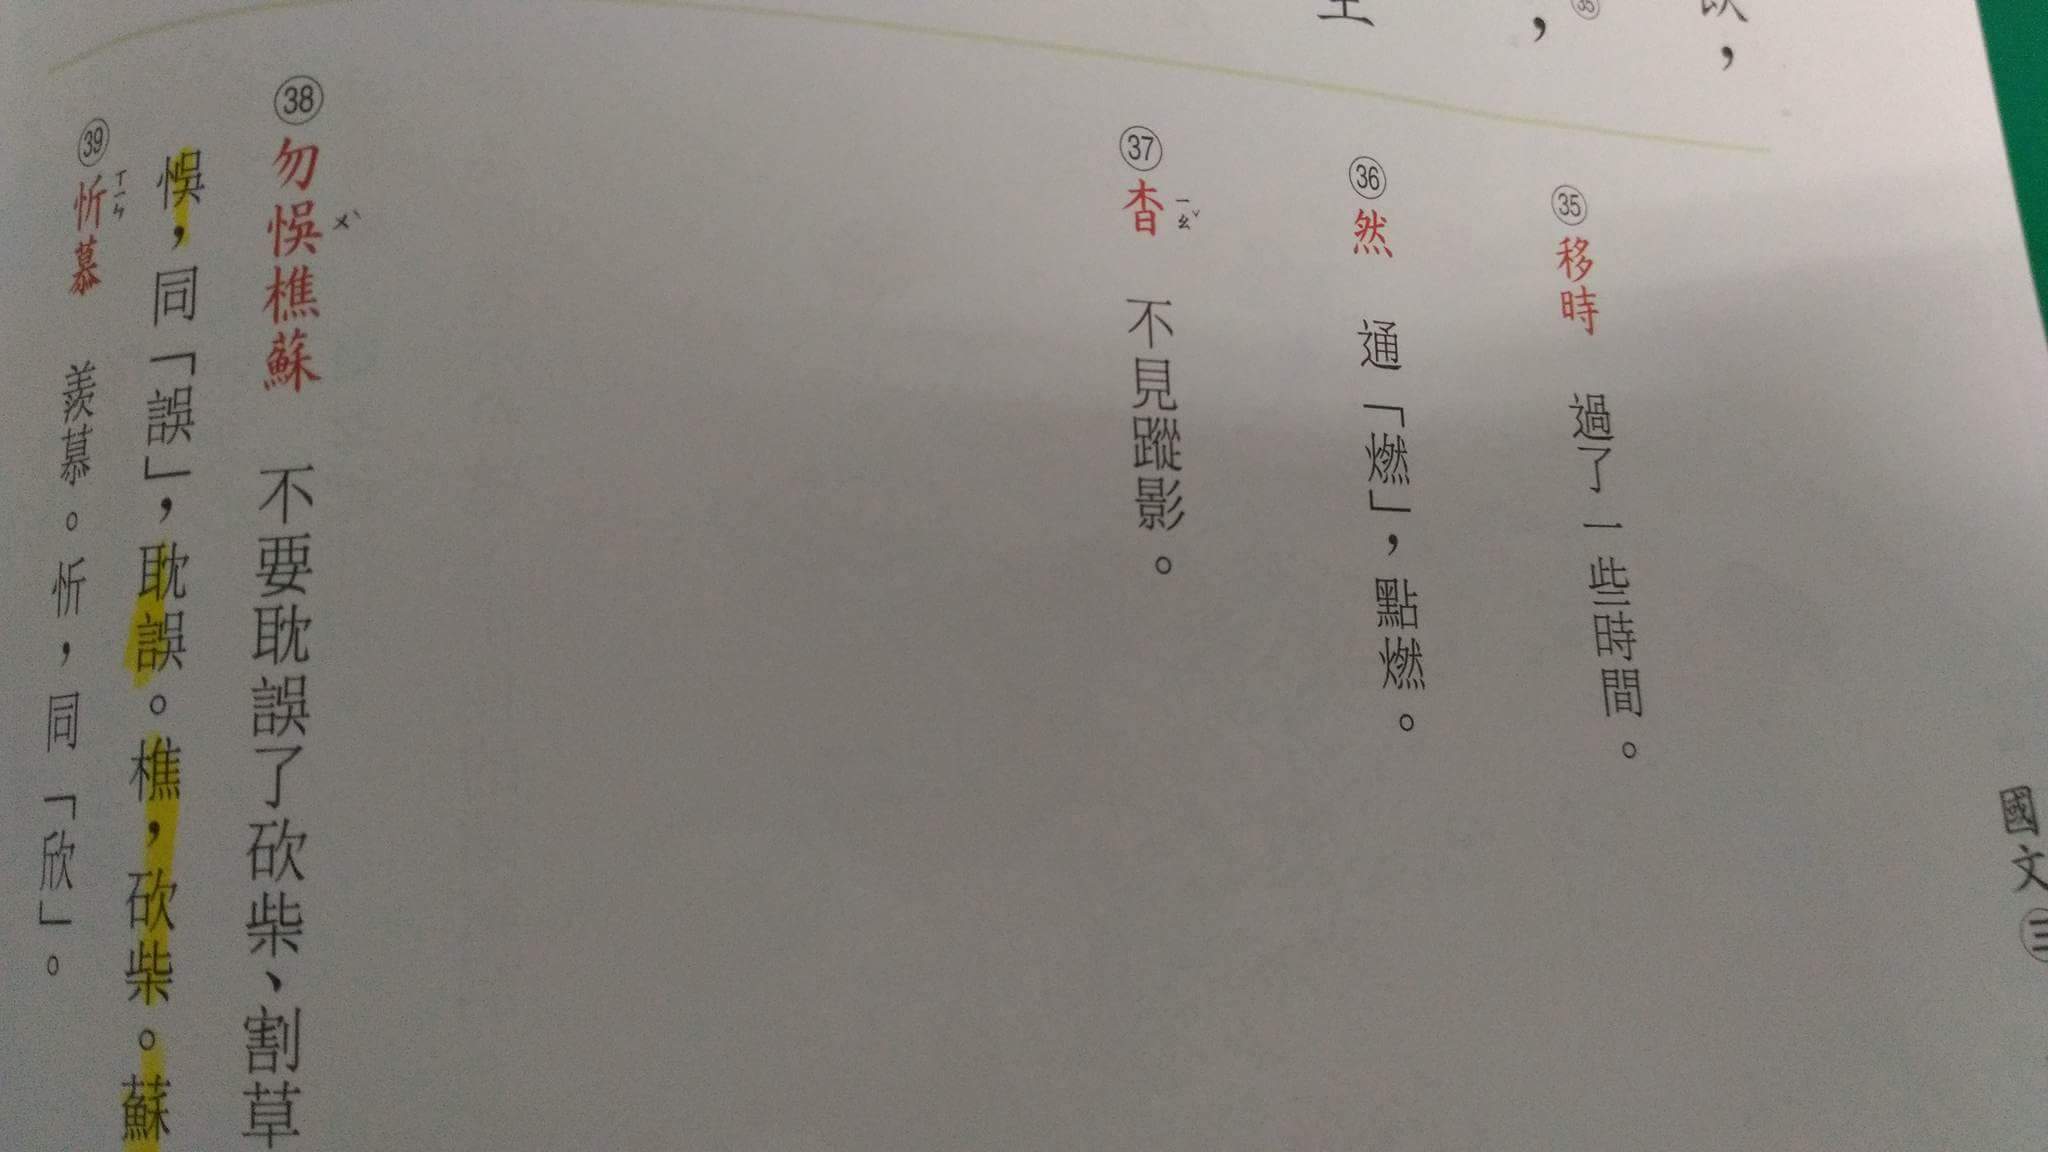 國文
㉟移時　過了一些時間。
㊱然　通「燃」，點燃。
㊲杳ㄧㄠˇ　不見蹤影。
㊳勿悞ㄨˋ樵蘇　不要耽誤了砍柴、割草
悞，同「誤」，耽誤。樵，砍柴。蘇
㊴忻ㄒㄧㄣ慕　羨慕。忻，同「欣」。